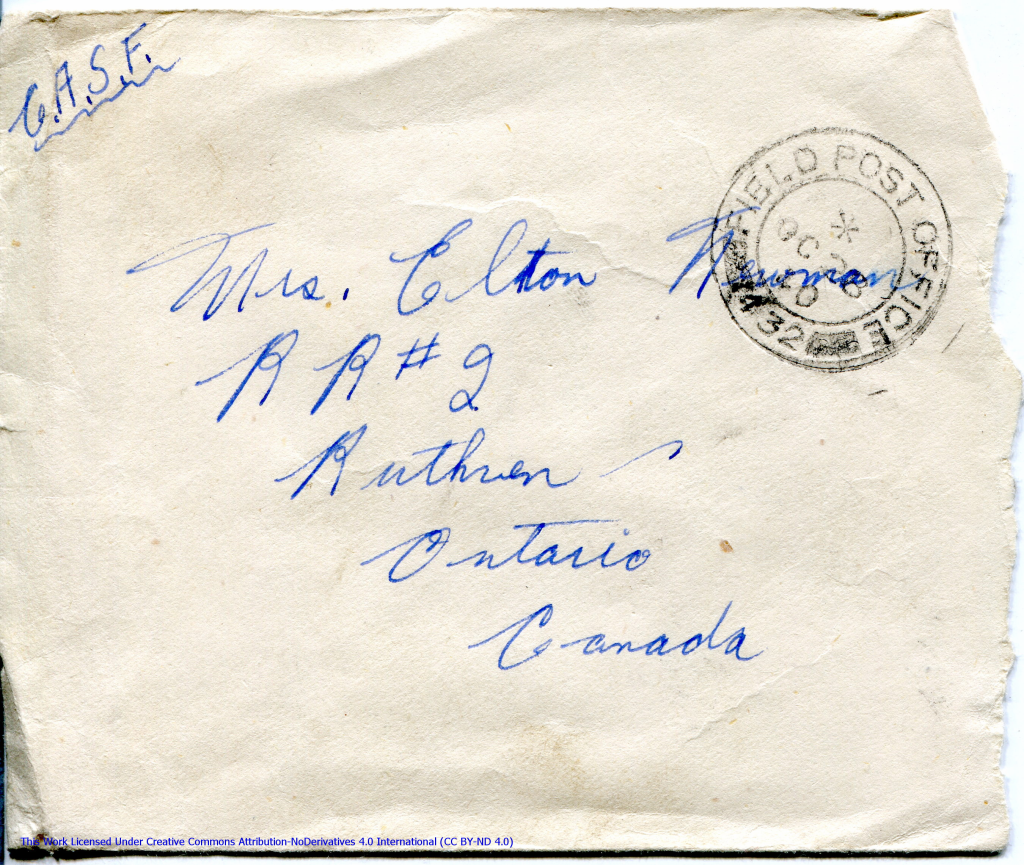 C.A.S.F.
FIELD POST OFFICE
432
Mrs. Elton Newman
R R # 2
Ruthven
Ontario
Canada
This Work Licensed Under Creative Commons Attribution-NoDerivatives 4.0 International (CC BY-ND 4.0)